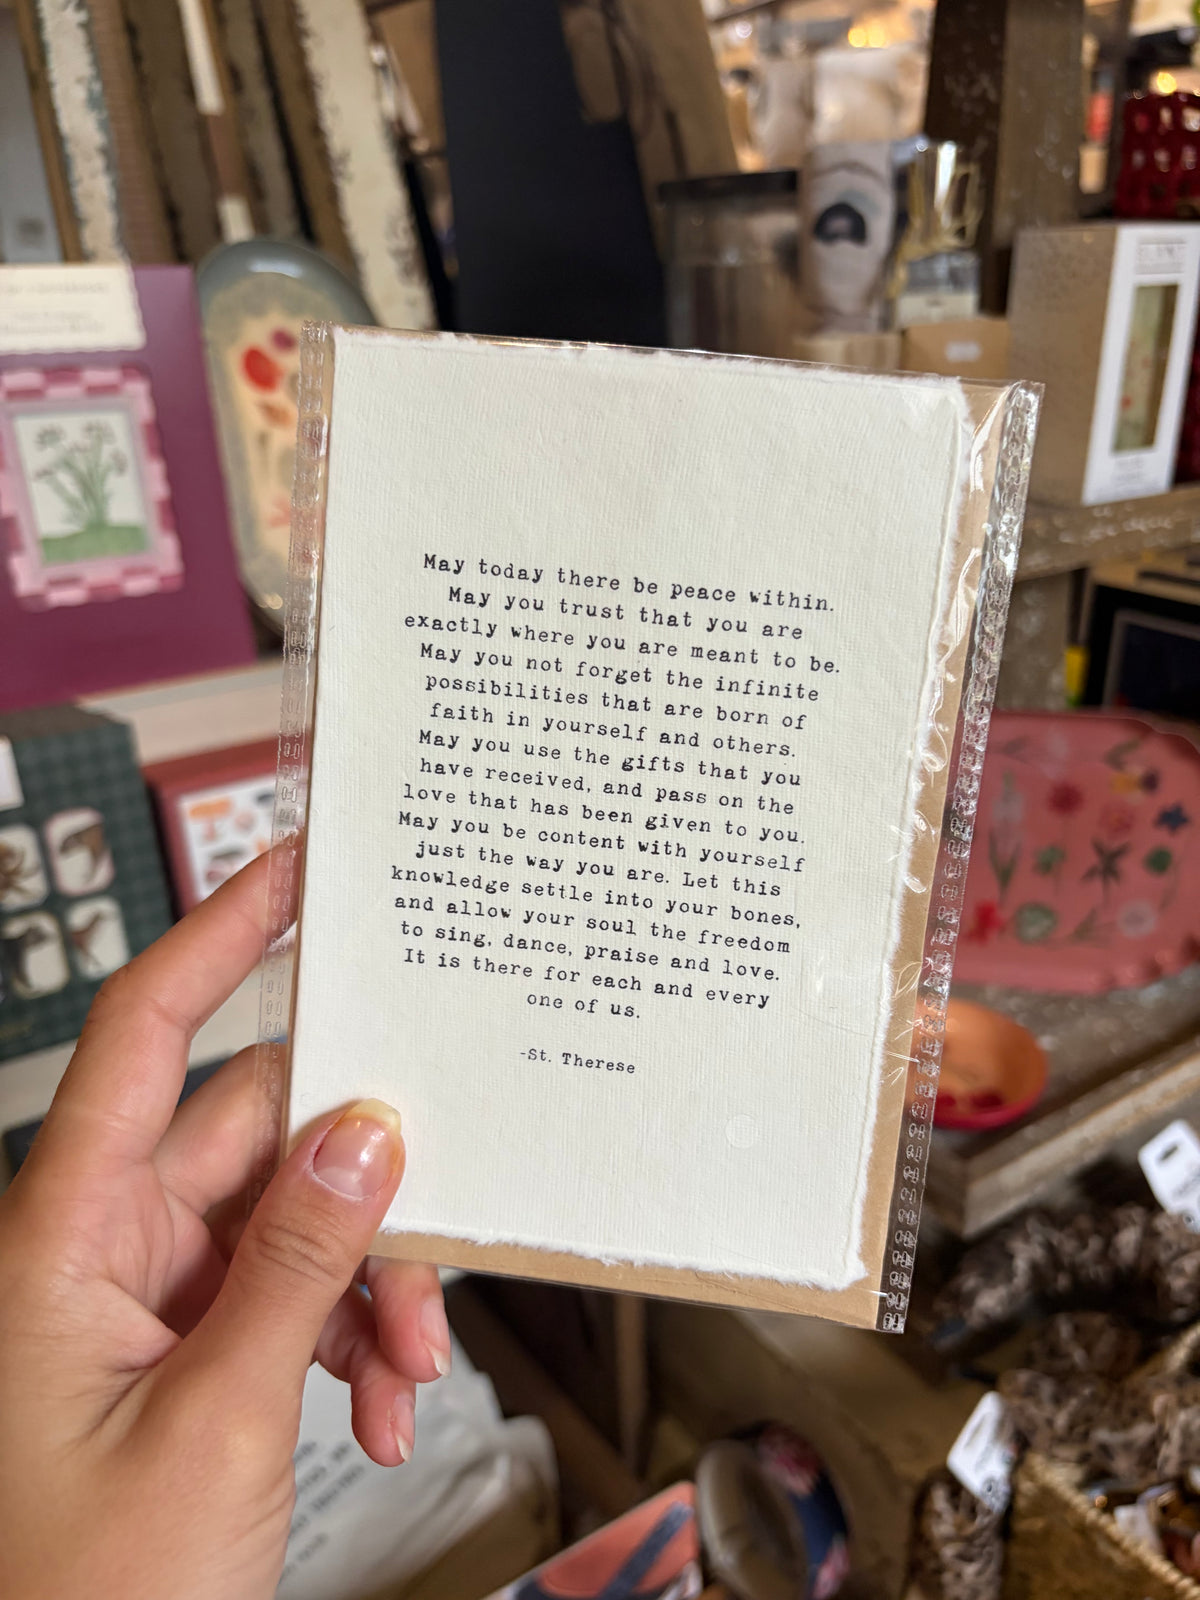 May today there be peace within.
May you trust that you are
exactly where you are meant to be.
May you not forget the infinite
possibilities that are born of
faith in yourself and others.
May you use the gifts that you
have received, and pass on the
love that has been given to you.
May you be content with yourself
just the way you are. Let this
knowledge settle into your bones,
and allow your soul the freedom
to sing, dance, praise and love.
It is there for each and every
one of us.
-St. Therese